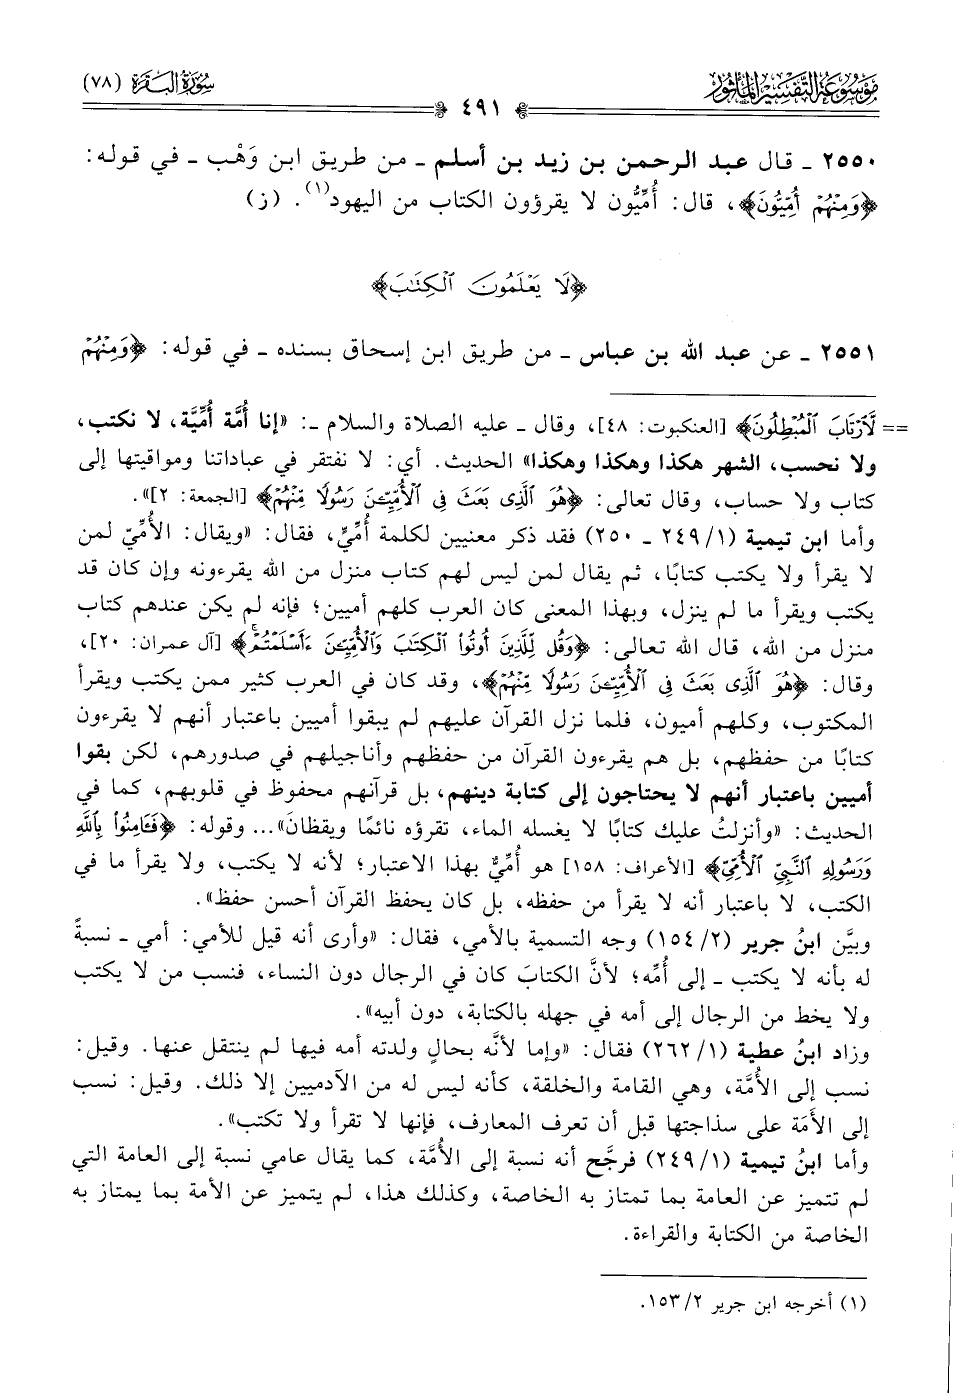 موسوعة التفسير المأثور
سورة البقرة (٧٨)
٤٩١
٢٥٥٠ ـ قال عبد الرحمن بن زيد بن أسلم ـ من طريق ابن وَهْب ـ في قوله:
﴿وَمِنْهُمْ أُمِّيُّونَ﴾، قال: أُمِّيُّون لا يقرؤون الكتاب من اليهود(١). (ز)
﴿لَا يَعْلَمُونَ الْكِتَابَ﴾
٢٥٥١ ـ عن عبد الله بن عباس ـ من طريق ابن إسحاق بسنده ـ في قوله: ﴿وَمِنْهُمْ
== لَّارْتَابَ الْمُبْطِلُونَ﴾ [العنكبوت: ٤٨]، وقال ـ عليه الصلاة والسلام ـ: «إنا أُمَّة أُمِّيَّة، لا نكتب،
ولا نحسب، الشهر هكذا وهكذا وهكذا» الحديث. أي: لا نفتقر في عباداتنا ومواقيتها إلى
كتاب ولا حساب، وقال تعالى: ﴿هُوَ الَّذِى بَعَثَ فِى الْأُمِّيِّـنَ رَسُولًا مِّنْهُمْ﴾ [الجمعة: ٢]».
وأما ابن تيمية (١/ ٢٤٩ ـ ٢٥٠) فقد ذكر معنيين لكلمة أُمِّيِّ، فقال: «ويقال: الأُمِّيّ لمن
لا يقرأ ولا يكتب كتابًا، ثم يقال لمن ليس لهم كتاب منزل من الله يقرءونه وإن كان قد
يكتب ويقرأ ما لم ينزل، وبهذا المعنى كان العرب كلهم أميين؛ فإنه لم يكن عندهم كتاب
منزل من الله، قال الله تعالى: ﴿وَقُل لِّلَّذِينَ أُوتُوا الْكِتَابَ وَالْأُمِّيِّـنَ ءَأَسْلَمْتُمْ﴾ [آل عمران: ٢٠]،
وقال: ﴿هُوَ الَّذِى بَعَثَ فِى الْأُمِّيِّـنَ رَسُولًا مِّنْهُمْ﴾، وقد كان في العرب كثير ممن يكتب ويقرأ
المكتوب، وكلهم أميون، فلما نزل القرآن عليهم لم يبقوا أميين باعتبار أنهم لا يقرءون
كتابًا من حفظهم، بل هم يقرءون القرآن من حفظهم وأناجيلهم في صدورهم، لكن بقوا
أميين باعتبار أنهم لا يحتاجون إلى كتابة دينهم، بل قرآنهم محفوظ في قلوبهم، كما في
الحديث: «وأنزلتُ عليك كتابًا لا يغسله الماء، تقرؤه نائمًا ويقظانَ»... وقوله: ﴿فَـَٔامِنُوا بِاللَّهِ
وَرَسُولِهِ النَّبِىِّ الْأُمِّىِّ﴾ [الأعراف: ١٥٨] هو أُمِّيٌّ بهذا الاعتبار؛ لأنه لا يكتب، ولا يقرأ ما في
الكتب، لا باعتبار أنه لا يقرأ من حفظه، بل كان يحفظ القرآن أحسن حفظ».
وبيَّن ابنُ جرير (٢/ ١٥٤) وجه التسمية بالأمي، فقال: «وأرى أنه قيل للأمي: أمي ـ نسبةً
له بأنه لا يكتب ـ إلى أُمِّه؛ لأنَّ الكتابَ كان في الرجال دون النساء، فنسب من لا يكتب
ولا يخط من الرجال إلى أمه في جهله بالكتابة، دون أبيه».
وزاد ابنُ عطية (١/ ٢٦٢) فقال: «وإما لأنَّه بحالٍ ولدته أمه فيها لم ينتقل عنها. وقيل:
نسب إلى الأُمَّة، وهي القامة والخلقة، كأنه ليس له من الآدميين إلا ذلك. وقيل: نسب
إلى الأَمَة على سذاجتها قبل أن تعرف المعارف، فإنها لا تقرأ ولا تكتب».
وأما ابنُ تيمية (١/ ٢٤٩) فرجَّح أنه نسبة إلى الأُمَّة، كما يقال عامي نسبة إلى العامة التي
لم تتميز عن العامة بما تمتاز به الخاصة، وكذلك هذا، لم يتميز عن الأمة بما يمتاز به
الخاصة من الكتابة والقراءة.
(١) أخرجه ابن جرير ٢/ ١٥٣.